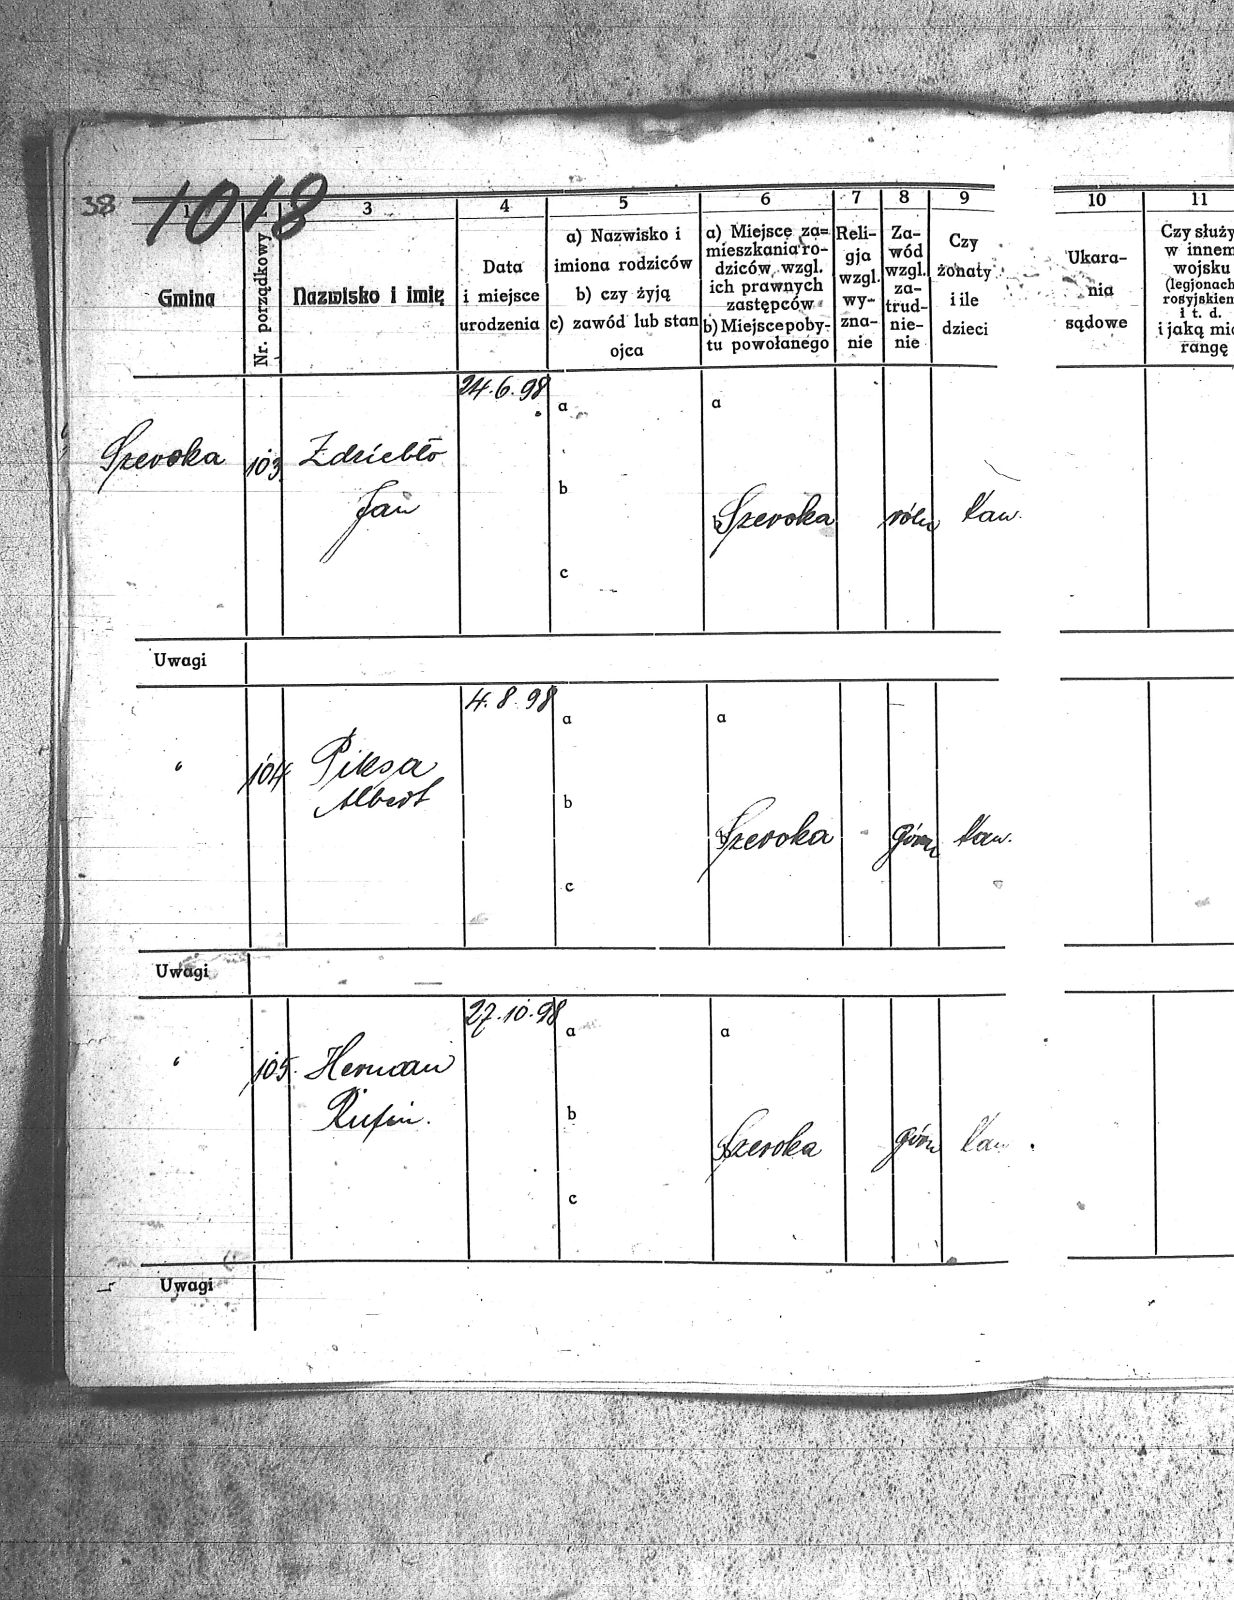 38
1018
1
3
4
5
6
7
8
9
10
11
Gmina
Nr. porządkowy
Nazwisko i imię
Data
i miejsce
urodzenia
a) Nazwisko i
imiona rodziców
b) czy żyją
c) zawód lub stan
ojca
a) Miejsce za-
mieszkania ro-
dziców, wzgl.
ich prawnych
zastępców
b) Miejsce poby-
tu powołanego
Reli-
gja
wzgl.
wy-
zna-
nie
Za-
wód
wzgl.
za-
trud-
nie-
nie
Czy
żonaty
i ile
dzieci
Ukara-
nia
sądowe
Czy służy
w innem
wojsku
(legjonach
rosyjskiem
i t. d.
i jaką mia
rangę
Szeroka
103.
Zdziebło
Jan
24.6.98
a
b
c
a
b Szeroka
róln
kaw.
Uwagi
"
104
Piksa
Albert
4.8.98
a
b
c
a
b Szeroka
górn
kaw.
Uwagi
"
105.
Herman
Rufin.
27.10.98
a
b
c
a
b Szeroka
górn
kaw
Uwagi